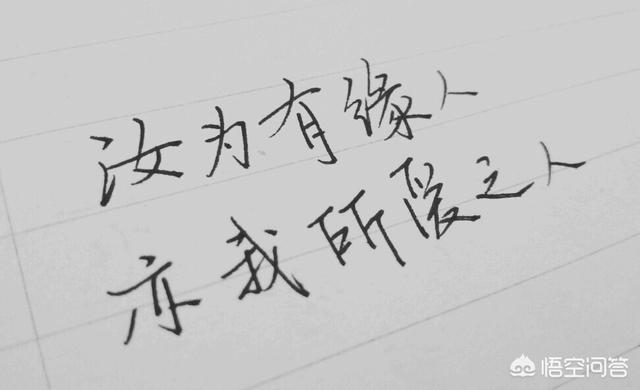 汝为有缘人
亦我所爱之人
悟空问答